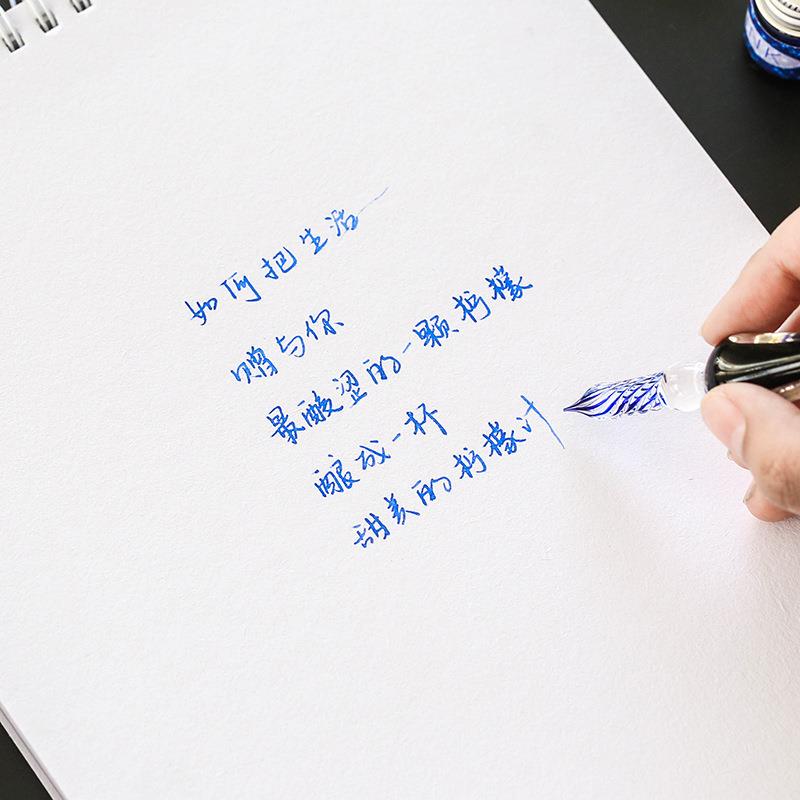 如何把生活
赠与你
最酸涩的一颗柠檬
酿成一杯
甜美的柠檬汁
INK